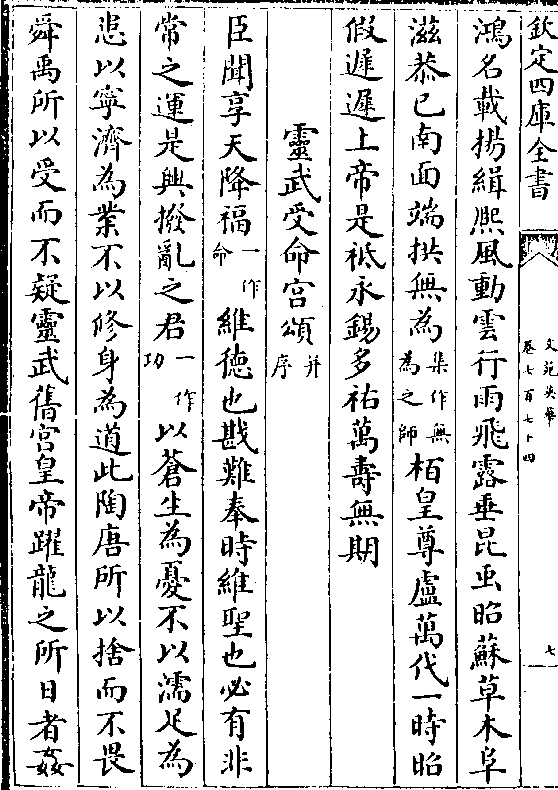 欽定四庫全書
文苑英華
卷七百七十四
七
鴻名載揚緝熙風動雲行雨飛露垂昆虫昭蘇草木阜
滋恭已南面端拱無為集作無為之師栢皇尊盧萬代一時昭
假遲遲上帝是祗永錫多祐萬壽無期
靈武受命宫頌并序
臣聞享天降福一作命維徳也戡難奉時維聖也必有非
常之運是興撥亂之君一作功以蒼生為憂不以濡足為
恥以寧濟為業不以修身為道此陶唐所以捨而不畏
舜禹所以受而不疑靈武舊宫皇帝躍龍之所日者姦